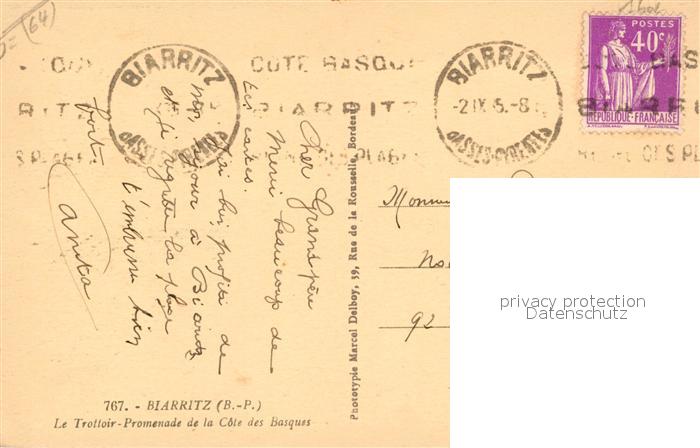 (64)
BIARRITZ
BASSES-PYRÉNÉES
COTE BASQUE
BIARRITZ
BIARRITZ
-2 IX 5.-8
BASSES-PYRENEES
POSTES
40c
REPUBLIQUE-FRANÇAISE
Cher Grand père
Merci beaucoup de
tes cartes.
J'ai bien profité de
mon séjour à Biarritz
et je regrette la plage
je t'embrasse bien
fort.
Anita
Phototypie Marcel Delboy, 39, Rue de la Rousselle, Bordeaux
92
privacy protection
Datenschutz
767. - BIARRITZ (B.-P.)
Le Trottoir-Promenade de la Côte des Basques